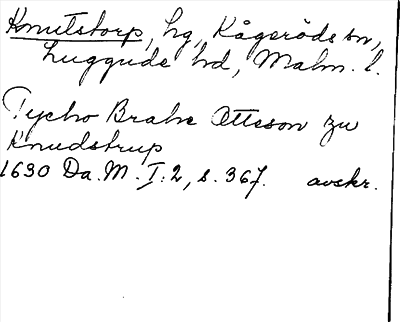 Knutstorp, hg, Kågeröds sn,
Luggude hd, Malm. l.
Tycho Brahe Otteson zu
Knudstrup
1630 Da. M. I:2, s. 367. avskr.